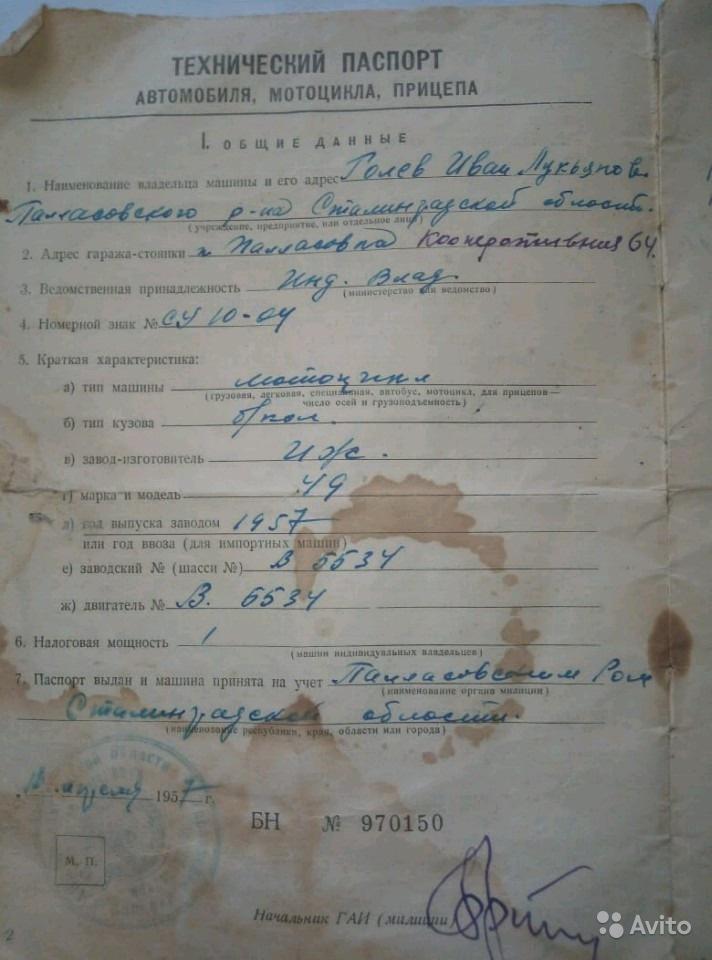 ТЕХНИЧЕСКИЙ ПАСПОРТ
АВТОМОБИЛЯ, МОТОЦИКЛА, ПРИЦЕПА
I. ОБЩИЕ ДАННЫЕ
1. Наименование владельца машины и его адрес Голев Иван Лукьянов.
Палласовского р-на Сталинградской области.
(учреждение, предприятие, или отдельное лицо)
2. Адрес гаража-стоянки п. Палласовка Кооперативная 64.
3. Ведомственная принадлежность Инд. Влад.
(министерство или ведомство)
4. Номерной знак № СУ 10-04
5. Краткая характеристика:
а) тип машины мотоцикл
(грузовая, легковая, специальная, автобус, мотоцикл, для прицепов—
число осей и грузоподъемность)
б) тип кузова
в) завод-изготовитель Иж.
г) марка и модель 49
д) год выпуска заводом 1957
или год ввоза (для импортных машин)
е) заводский № (шасси №) В 5534
ж) двигатель № В. 6534
6. Налоговая мощность 1
(машин индивидуальных владельцев)
7. Паспорт выдан и машина принята на учет Палласовским Ром
(наименование органа милиции)
Сталинградской области.
(наименование республики, края, области или города)
апреля 1957 г.
БН № 970150
М. П.
Начальник ГАИ (милиции
2
Avito